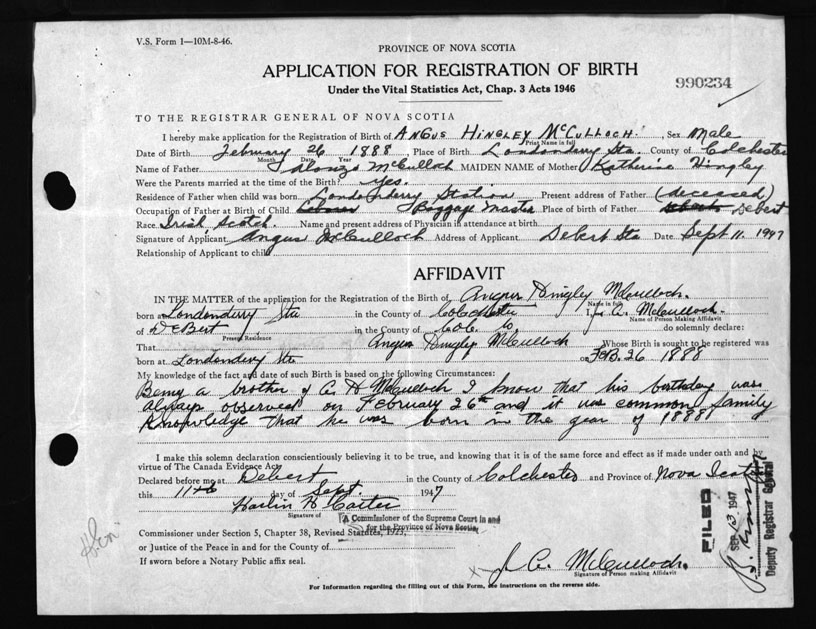 V.S. Form 1—10M-8-46.
PROVINCE OF NOVA SCOTIA
APPLICATION FOR REGISTRATION OF BIRTH
990234
Under the Vital Statistics Act, Chap. 3 Acts 1946
TO THE REGISTRAR GENERAL OF NOVA SCOTIA
I hereby make application for the Registration of Birth of ANGUS HINGLEY McCULLOCH. Sex Male
Print Name in full
Date of Birth February 26 1888, Place of Birth Londonderry Sta. County of Colchester
Month Date Year
Name of Father Alonzo McCulloch MAIDEN NAME of Mother Katherine Hingley
Were the Parents married at the time of the Birth? yes.
Residence of Father when child was born Londonderry Station Present address of Father (deceased)
Occupation of Father at Birth of Child Baggage Master Place of birth of Father Debert
Race Irish Scotch Name and present address of Physician in attendance at birth
Signature of Applicant Angus McCulloch Address of Applicant Debert Sta Date Sept 11. 1947
Relationship of Applicant to child
AFFIDAVIT
IN THE MATTER of the application for the Registration of the Birth of Angus Hingley McCulloch.
Name in full
born at Londonderry Sta in the County of Colchester I, J. A. McCulloch.
Name of Person Making Affidavit
of DeBert in the County of Col. Co. do solemnly declare:
Present Residence
That Angus Hingley McCulloch Whose Birth is sought to be registered was
born at Londonderry Sta FeB. 26 1888
My knowledge of the fact and date of such Birth is based on the following Circumstances:
Being a brother of A. H McCulloch I know that his birthday was
always observed on February 26th and it was common family
Knowledge that he was born in the year of 1888
I make this solemn declaration conscientiously believing it to be true, and knowing that it is of the same force and effect as if made under oath and by
virtue of The Canada Evidence Act.
Declared before me at Debert in the County of Colchester and Province of Nova Scotia
this 11th day of Sept. 1947
Harlin H Carter
Signature of
A Commissioner of the Supreme Court in and
for the Province of Nova Scotia
Commissioner under Section 5, Chapter 38, Revised Statutes, 1923,
or Justice of the Peace in and for the County of
If sworn before a Notary Public affix seal.
J. A. McCulloch.
Signature of Person making Affidavit
For Information regarding the filling out of this Form, see instructions on the reverse side.
FILED
SEP 13 1947
Deputy Registrar General